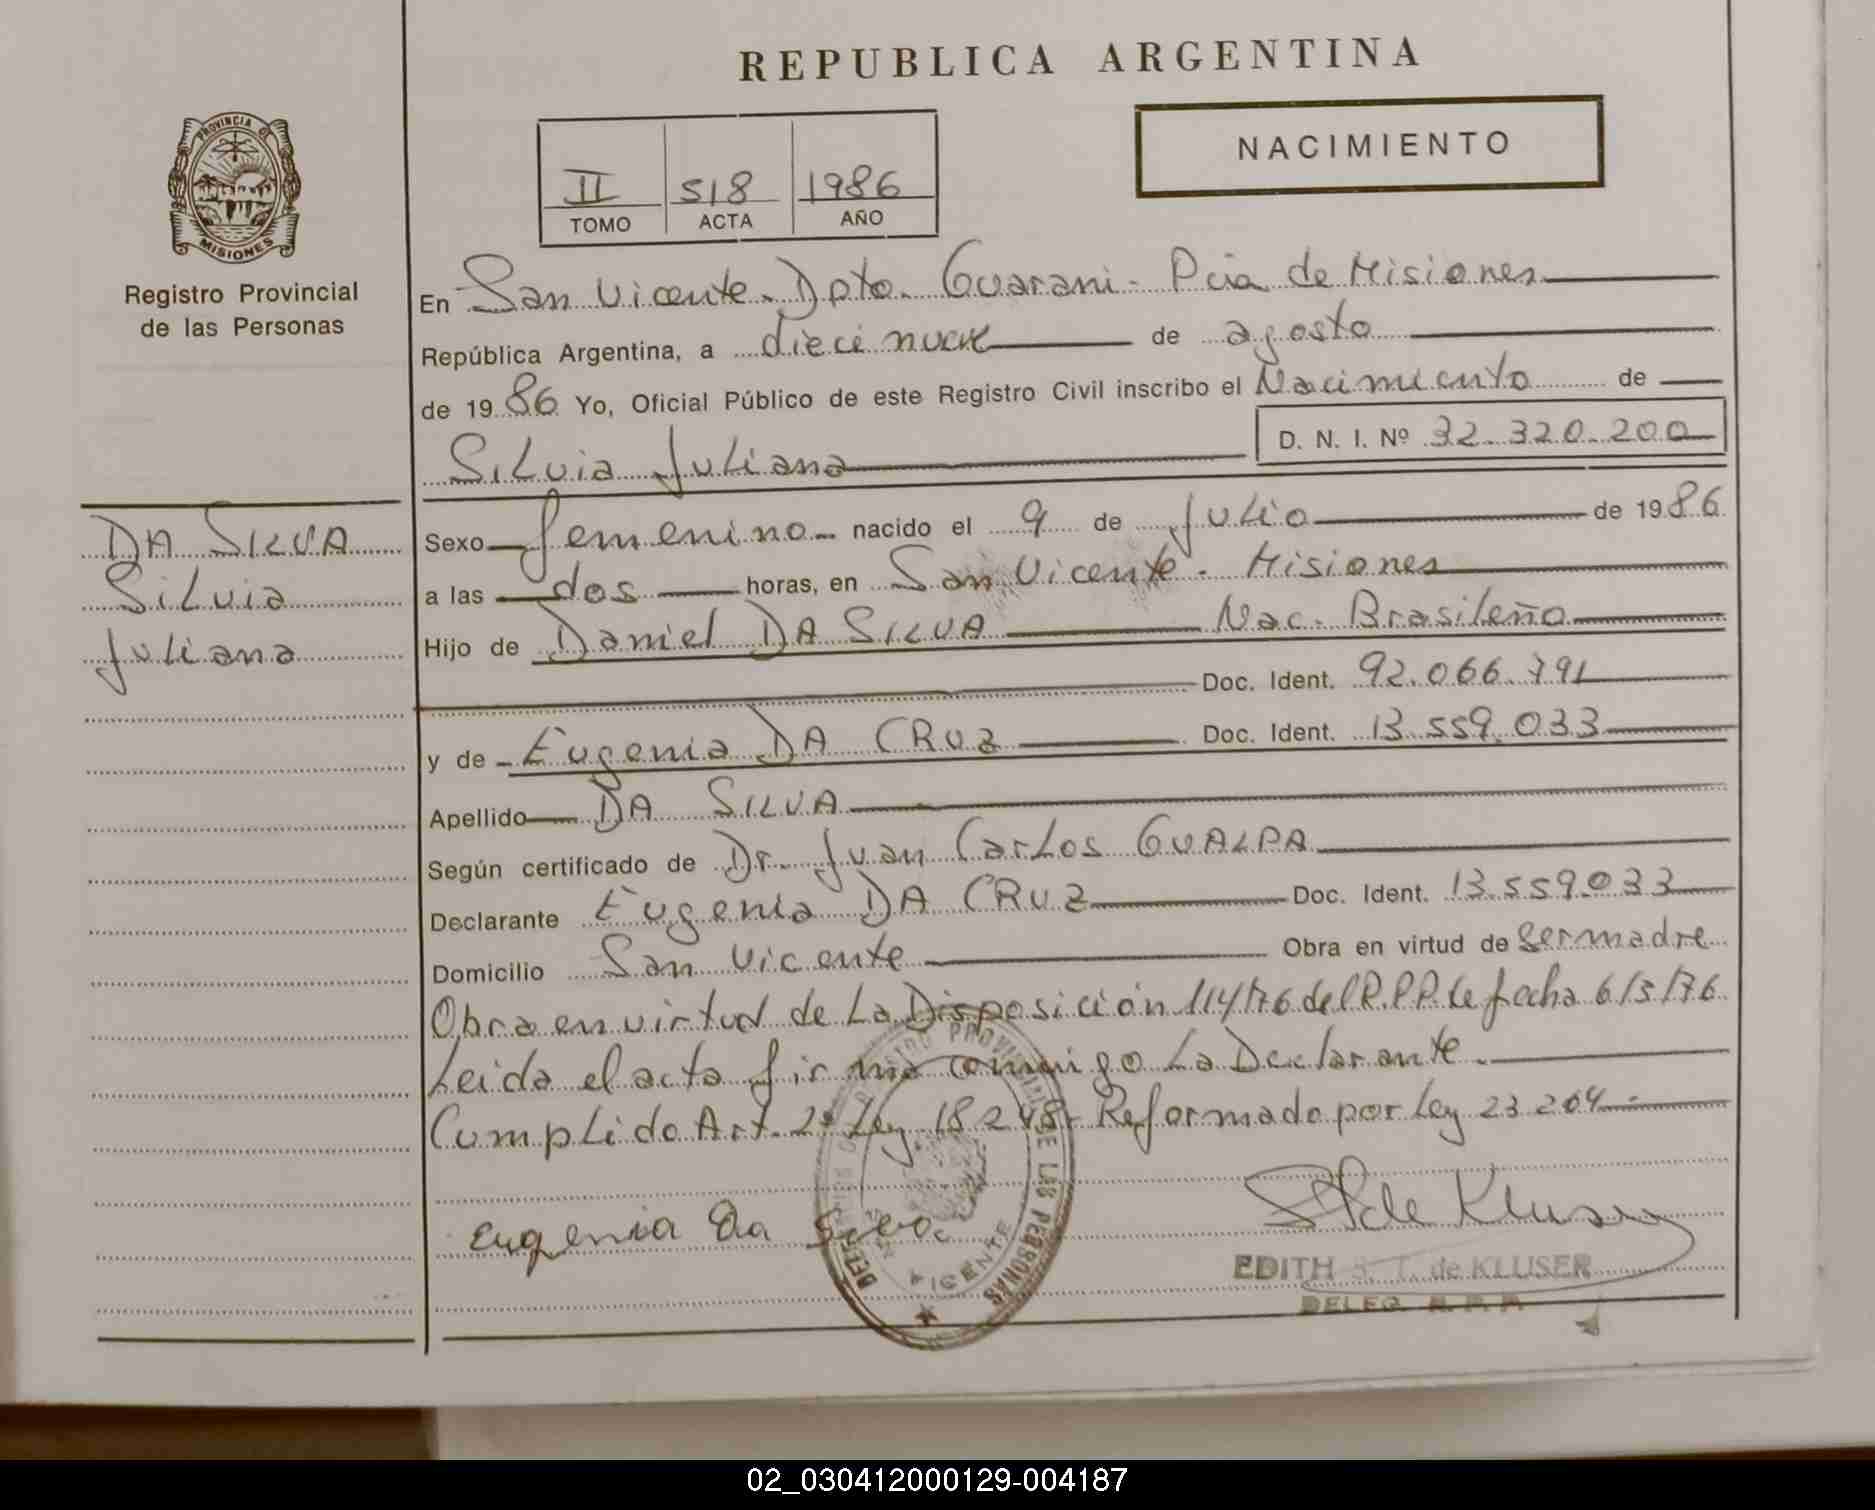 REPUBLICA ARGENTINA
NACIMIENTO
II 518 1986
TOMO ACTA AÑO
PROVINCIA DE
MISIONES
Registro Provincial
de las Personas
En San Vicente. Dpto. Guarani - Pcia de Misiones
República Argentina, a dieci nueve de agosto
de 19 86 Yo, Oficial Público de este Registro Civil inscribo el Nacimiento de
Silvia Juliana D. N. I. Nº 32.320.200
DA SILVA
Silvia
Juliana
Sexo femenino nacido el 9 de Julio de 19 86
a las dos horas, en San Vicente - Misiones
Hijo de Daniel DA SILVA Nac. Brasileño
Doc. Ident. 92.066.791
y de Eugenia DA CRUZ Doc. Ident. 13.559.033
Apellido DA SILVA
Según certificado de Dr. Juan Carlos GUALPA
Declarante Eugenia DA CRUZ Doc. Ident. 13.559.033
Domicilio San Vicente Obra en virtud de ser madre
Obra en virtud de La Disposición 114/76 del R.P.P. de fecha 6/5/76
Leida el acta firma conmigo La Declarante.
Cumplido Art. 2º Ley 18248 Reformado por Ley 23.264
Eugenia Da
REGISTRO PROVINCIAL DE LAS PERSONAS
SAN VICENTE
S T de Kluser
EDITH S. T. de KLUSER
DELEG. R. P. P.
02_030412000129-004187